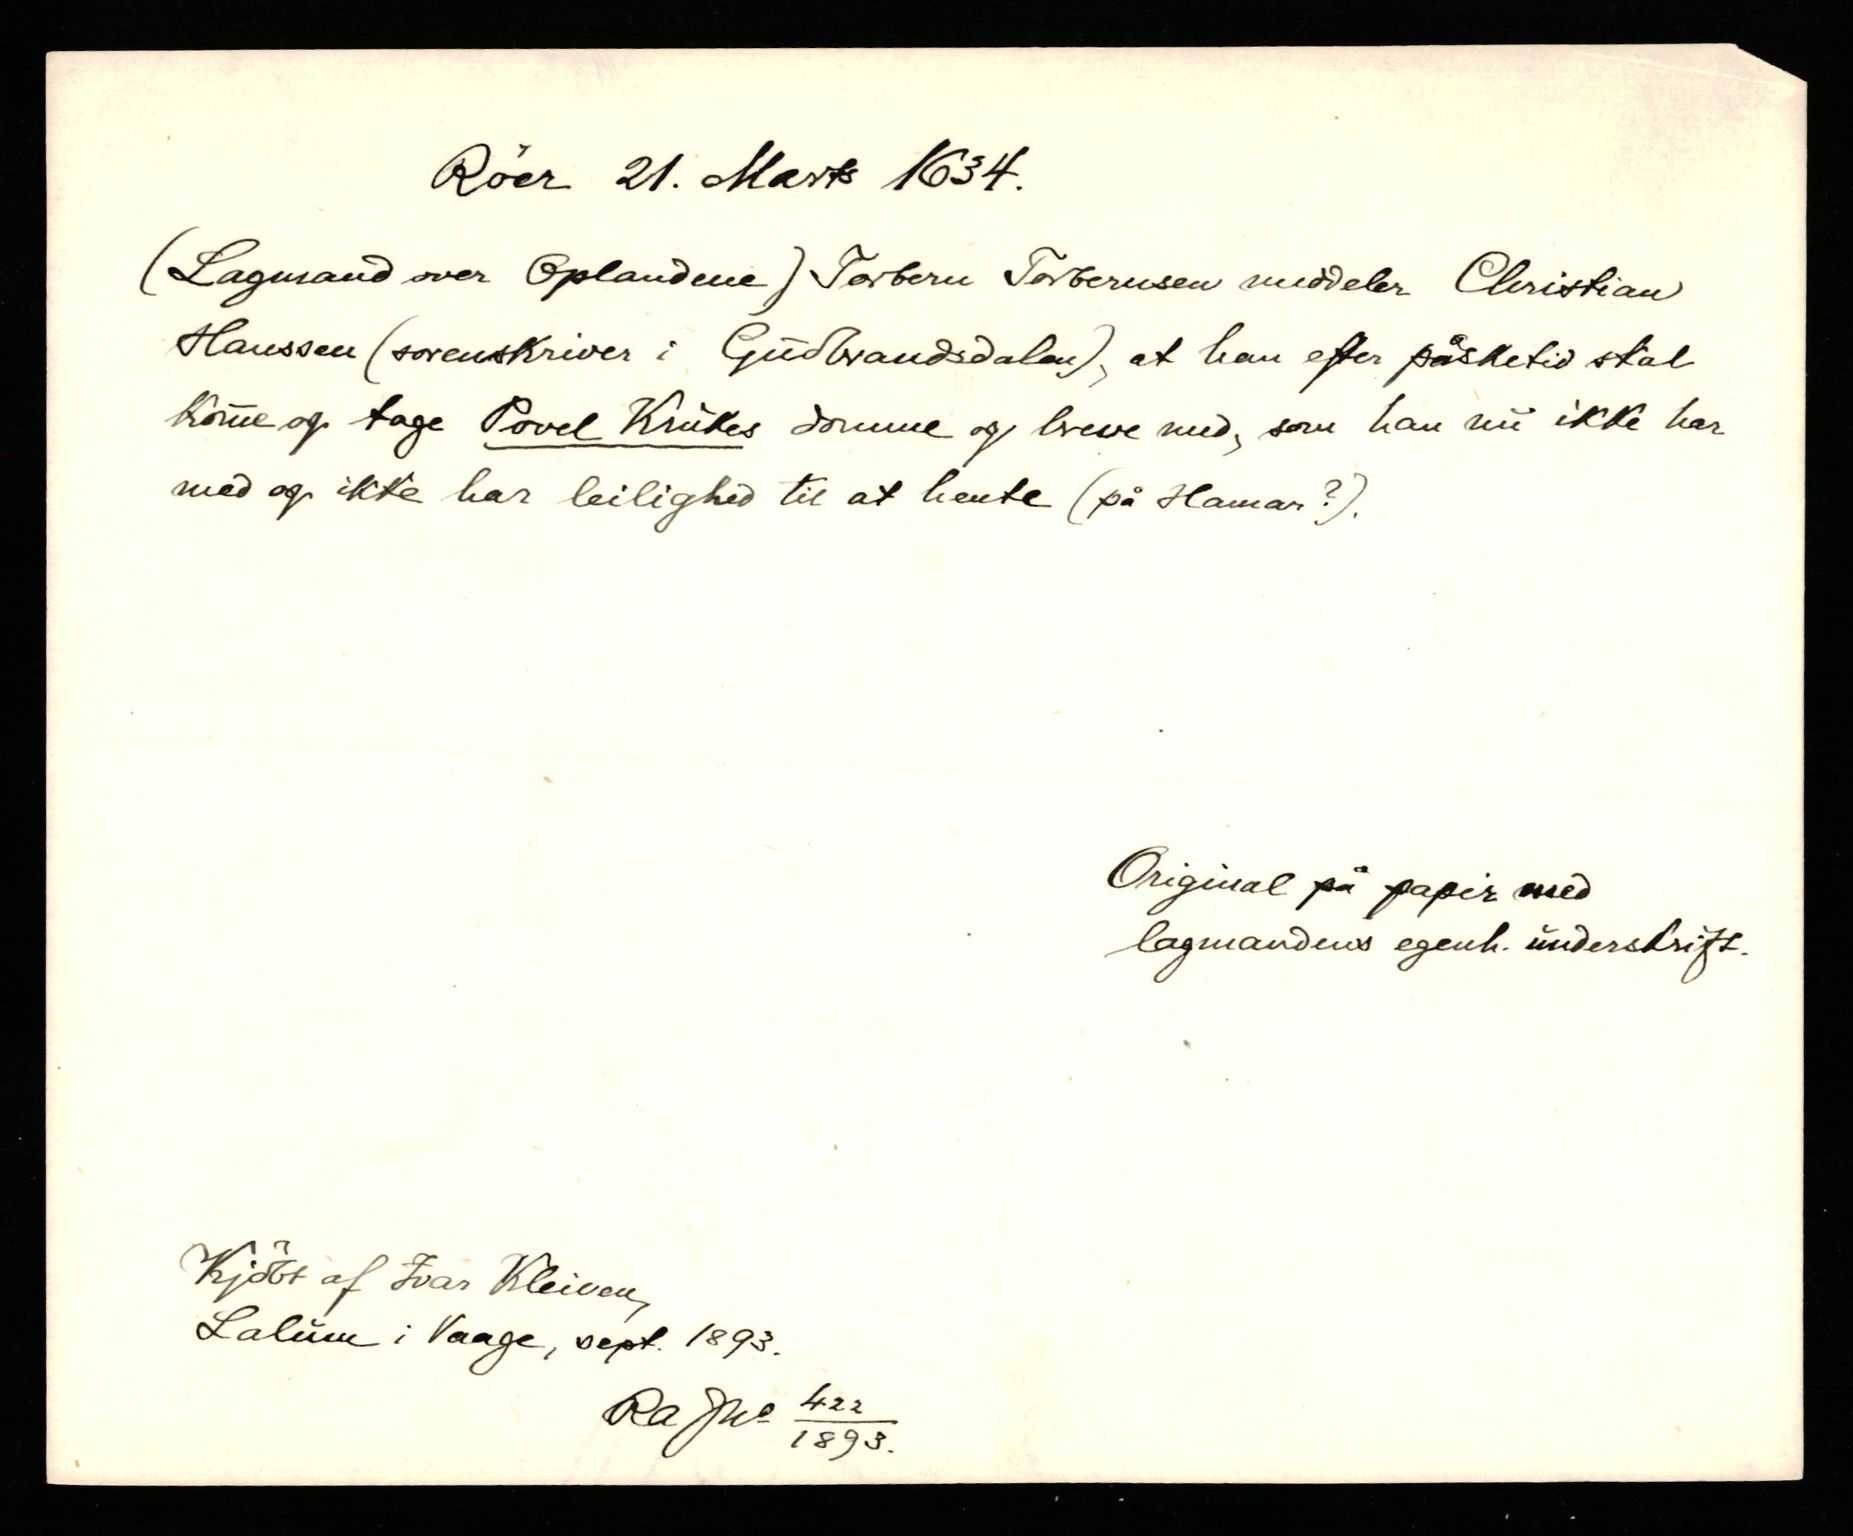 Röer 21. Marts 1634.
(Lagmand over Oplandene) Torbern Torbernsen meddeler Christian
Hanssen (sorenskriver i Gudbrandsdalen), at han efter påsketid skal
kom̅e og tage Povel Krukes domme og breve med, som han nu ikke har
med og ikke har leilighed til at hente (på Hamar?).
Original på papir med
lagmandens egenh. underskrift.
Kjöbt af Ivar Kleiven,
Lalum i Vaage, sept. 1893.
Ra Jno 422/1893.